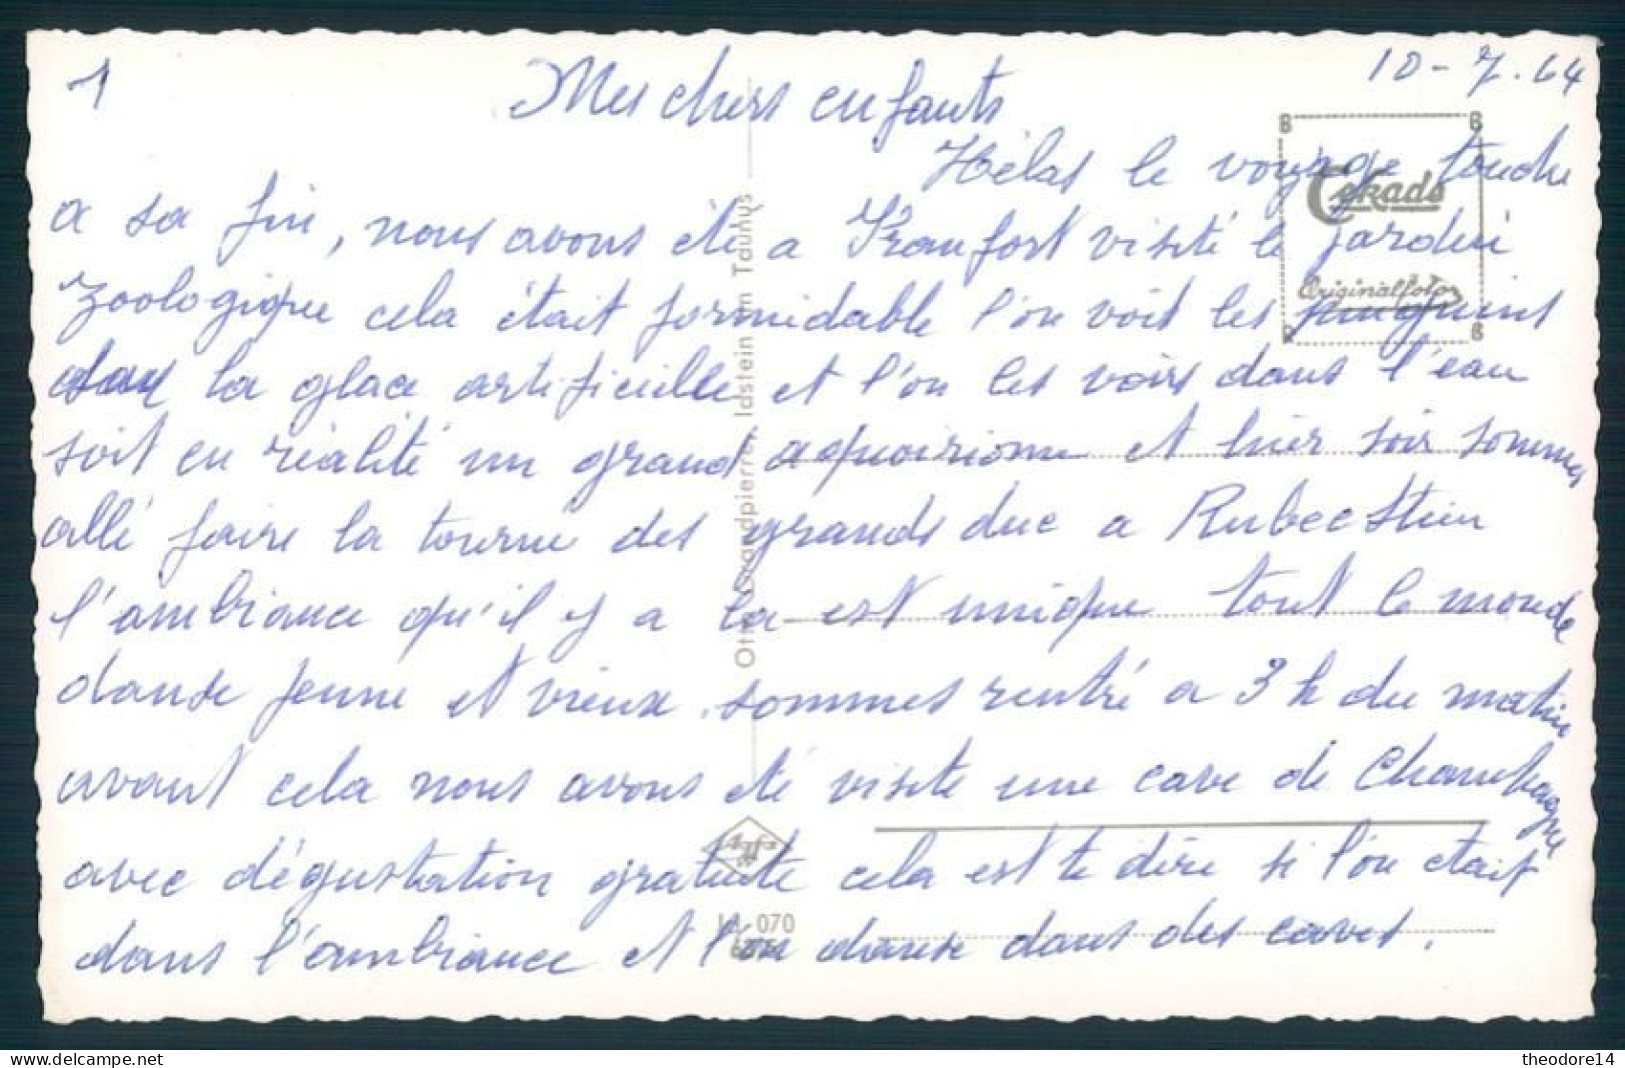 1
10-7.64
Mes chers enfants
Hélas le voyage touche
a sa fin, nous avons été a Franfort visité le jardin
zoologique cela était formidable l'on voit les pinguins
dans la glace artificielle et l'on les voirs dans l'eau
soit en réalité un grand aquoirionne et hier soir sommes
allé faire la tourne des grands duc a Rubecstein
l'ambiance qu'il y a la est unique tout le monde
danse jeune et vieux. sommes rentré a 3 h du matin
avant cela nous avons été visite une cave de Champagne
avec dégustation gratuite cela est te dire si l'on etait
dans l'ambiance et l'on danse dans des caves.
Cekade
Originalfotos
B
B
B
Otto Grandpierre, Idstein im Taunus
Agfa
070
theodore14